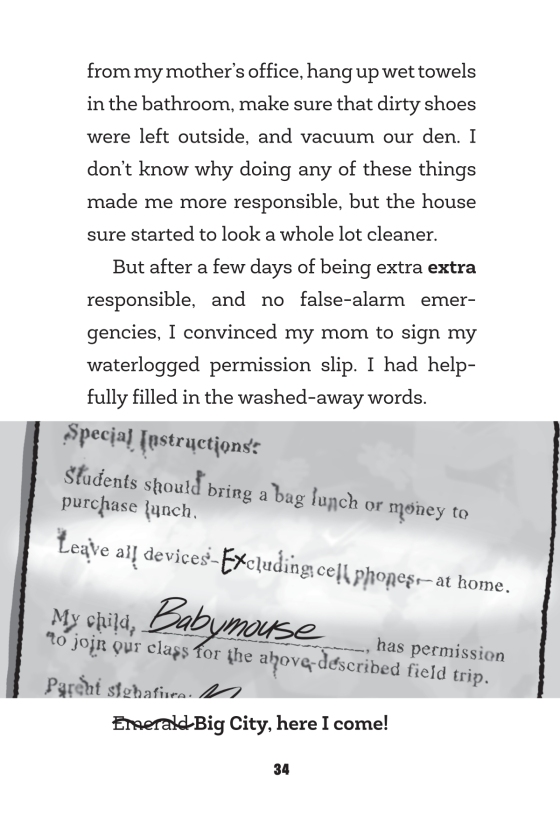 from my mother's office, hang up wet towels
in the bathroom, make sure that dirty shoes
were left outside, and vacuum our den. I
don't know why doing any of these things
made me more responsible, but the house
sure started to look a whole lot cleaner.
But after a few days of being extra extra
responsible, and no false-alarm emer-
gencies, I convinced my mom to sign my
waterlogged permission slip. I had help-
fully filled in the washed-away words.
Special Instructions:
Students should bring a bag lunch or money to
purchase lunch.
Leave all devices–Excluding cell phones–at home.
My child, Babymouse, has permission
to join our class for the above-described field trip.
Parent signature:
Emerald Big City, here I come!
34